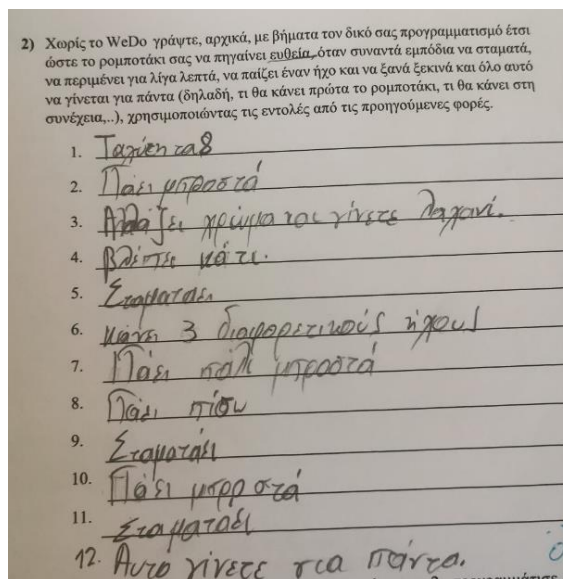 2) Χωρίς το WeDo γράψτε, αρχικά, με βήματα τον δικό σας προγραμματισμό έτσι
ώστε το ρομποτάκι σας να πηγαίνει ευθεία, όταν συναντά εμπόδια να σταματά,
να περιμένει για λίγα λεπτά, να παίζει έναν ήχο και να ξανά ξεκινά και όλο αυτό
να γίνεται για πάντα (δηλαδή, τι θα κάνει πρώτα το ρομποτάκι, τι θα κάνει στη
συνέχεια,..), χρησιμοποιώντας τις εντολές από τις προηγούμενες φορές.
1. Ταχύτητα 8
2. Πάει μπροστά
3. Αλλάζει χρώμα και γίνετε λαχανί.
4. Βλέπει κάτι.
5. Σταματάει
6. κάνει 3 διαφορετικούς ήχους
7. Πάει πάλι μπροστά
8. Πάει πίσω
9. Σταματάει
10. Πάει μπροστά
11. Σταματάει
12. Αυτο γίνετε για πάντα.